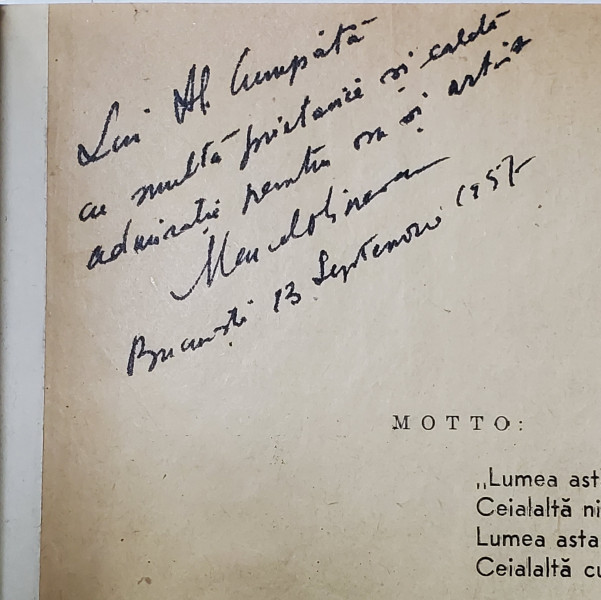 Lui Al. Cumpătă
cu multă prietenie și caldă
admirație pentru om și artist
București 13 Septembrie 1957
MOTTO:
„Lumea ast
Ceialaltă ni
Lumea asta
Ceialaltă cu